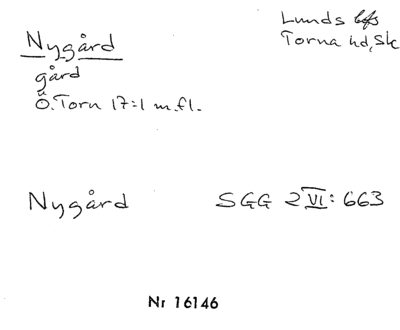 Nygård
gård
Ö. Torn 17:1 m.fl.
Lunds lfs
Torna hd, Sk
Nygård SGG 2 VI: 663
Nr 16146